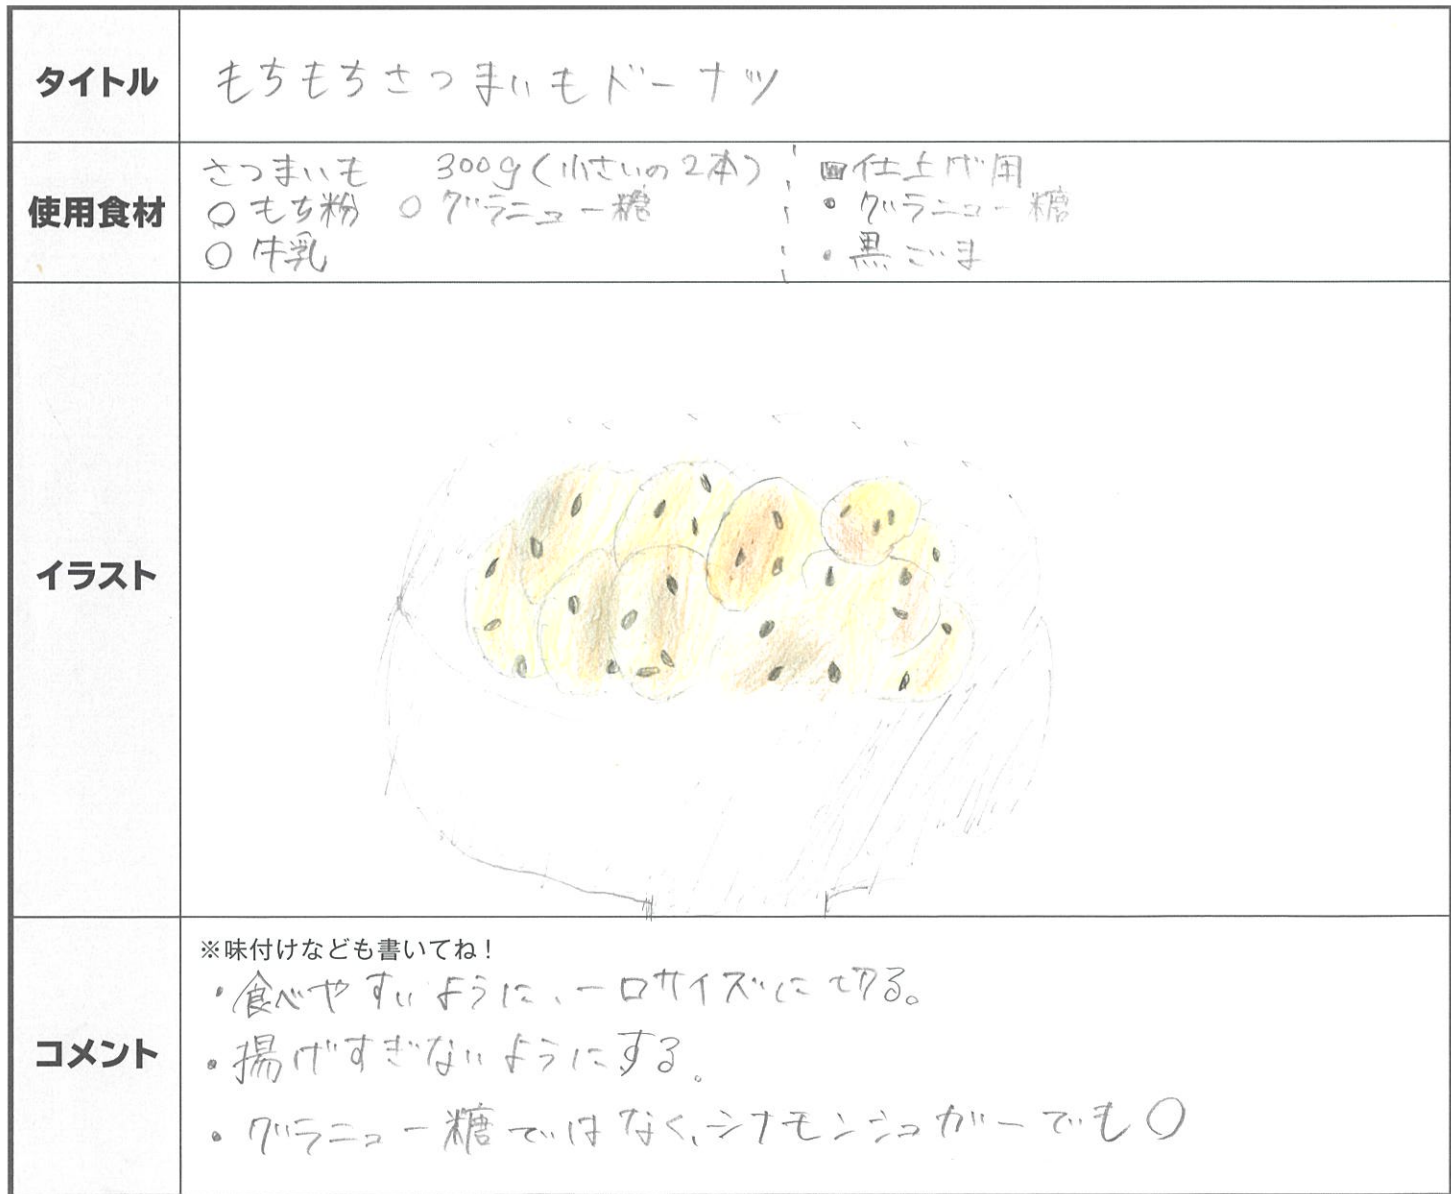 タイトル
もちもちさつまいもドーナツ
使用食材
さつまいも 300g(小さいの2本)
○ もち粉 ○ グラニュー糖
○ 牛乳
■仕上げ用
・グラニュー糖
・黒ごま
イラスト
コメント
※味付けなども書いてね!
・食べやすいように、一口サイズに切る。
・揚げすぎないようにする。
・グラニュー糖ではなく、シナモンシュガーでも○